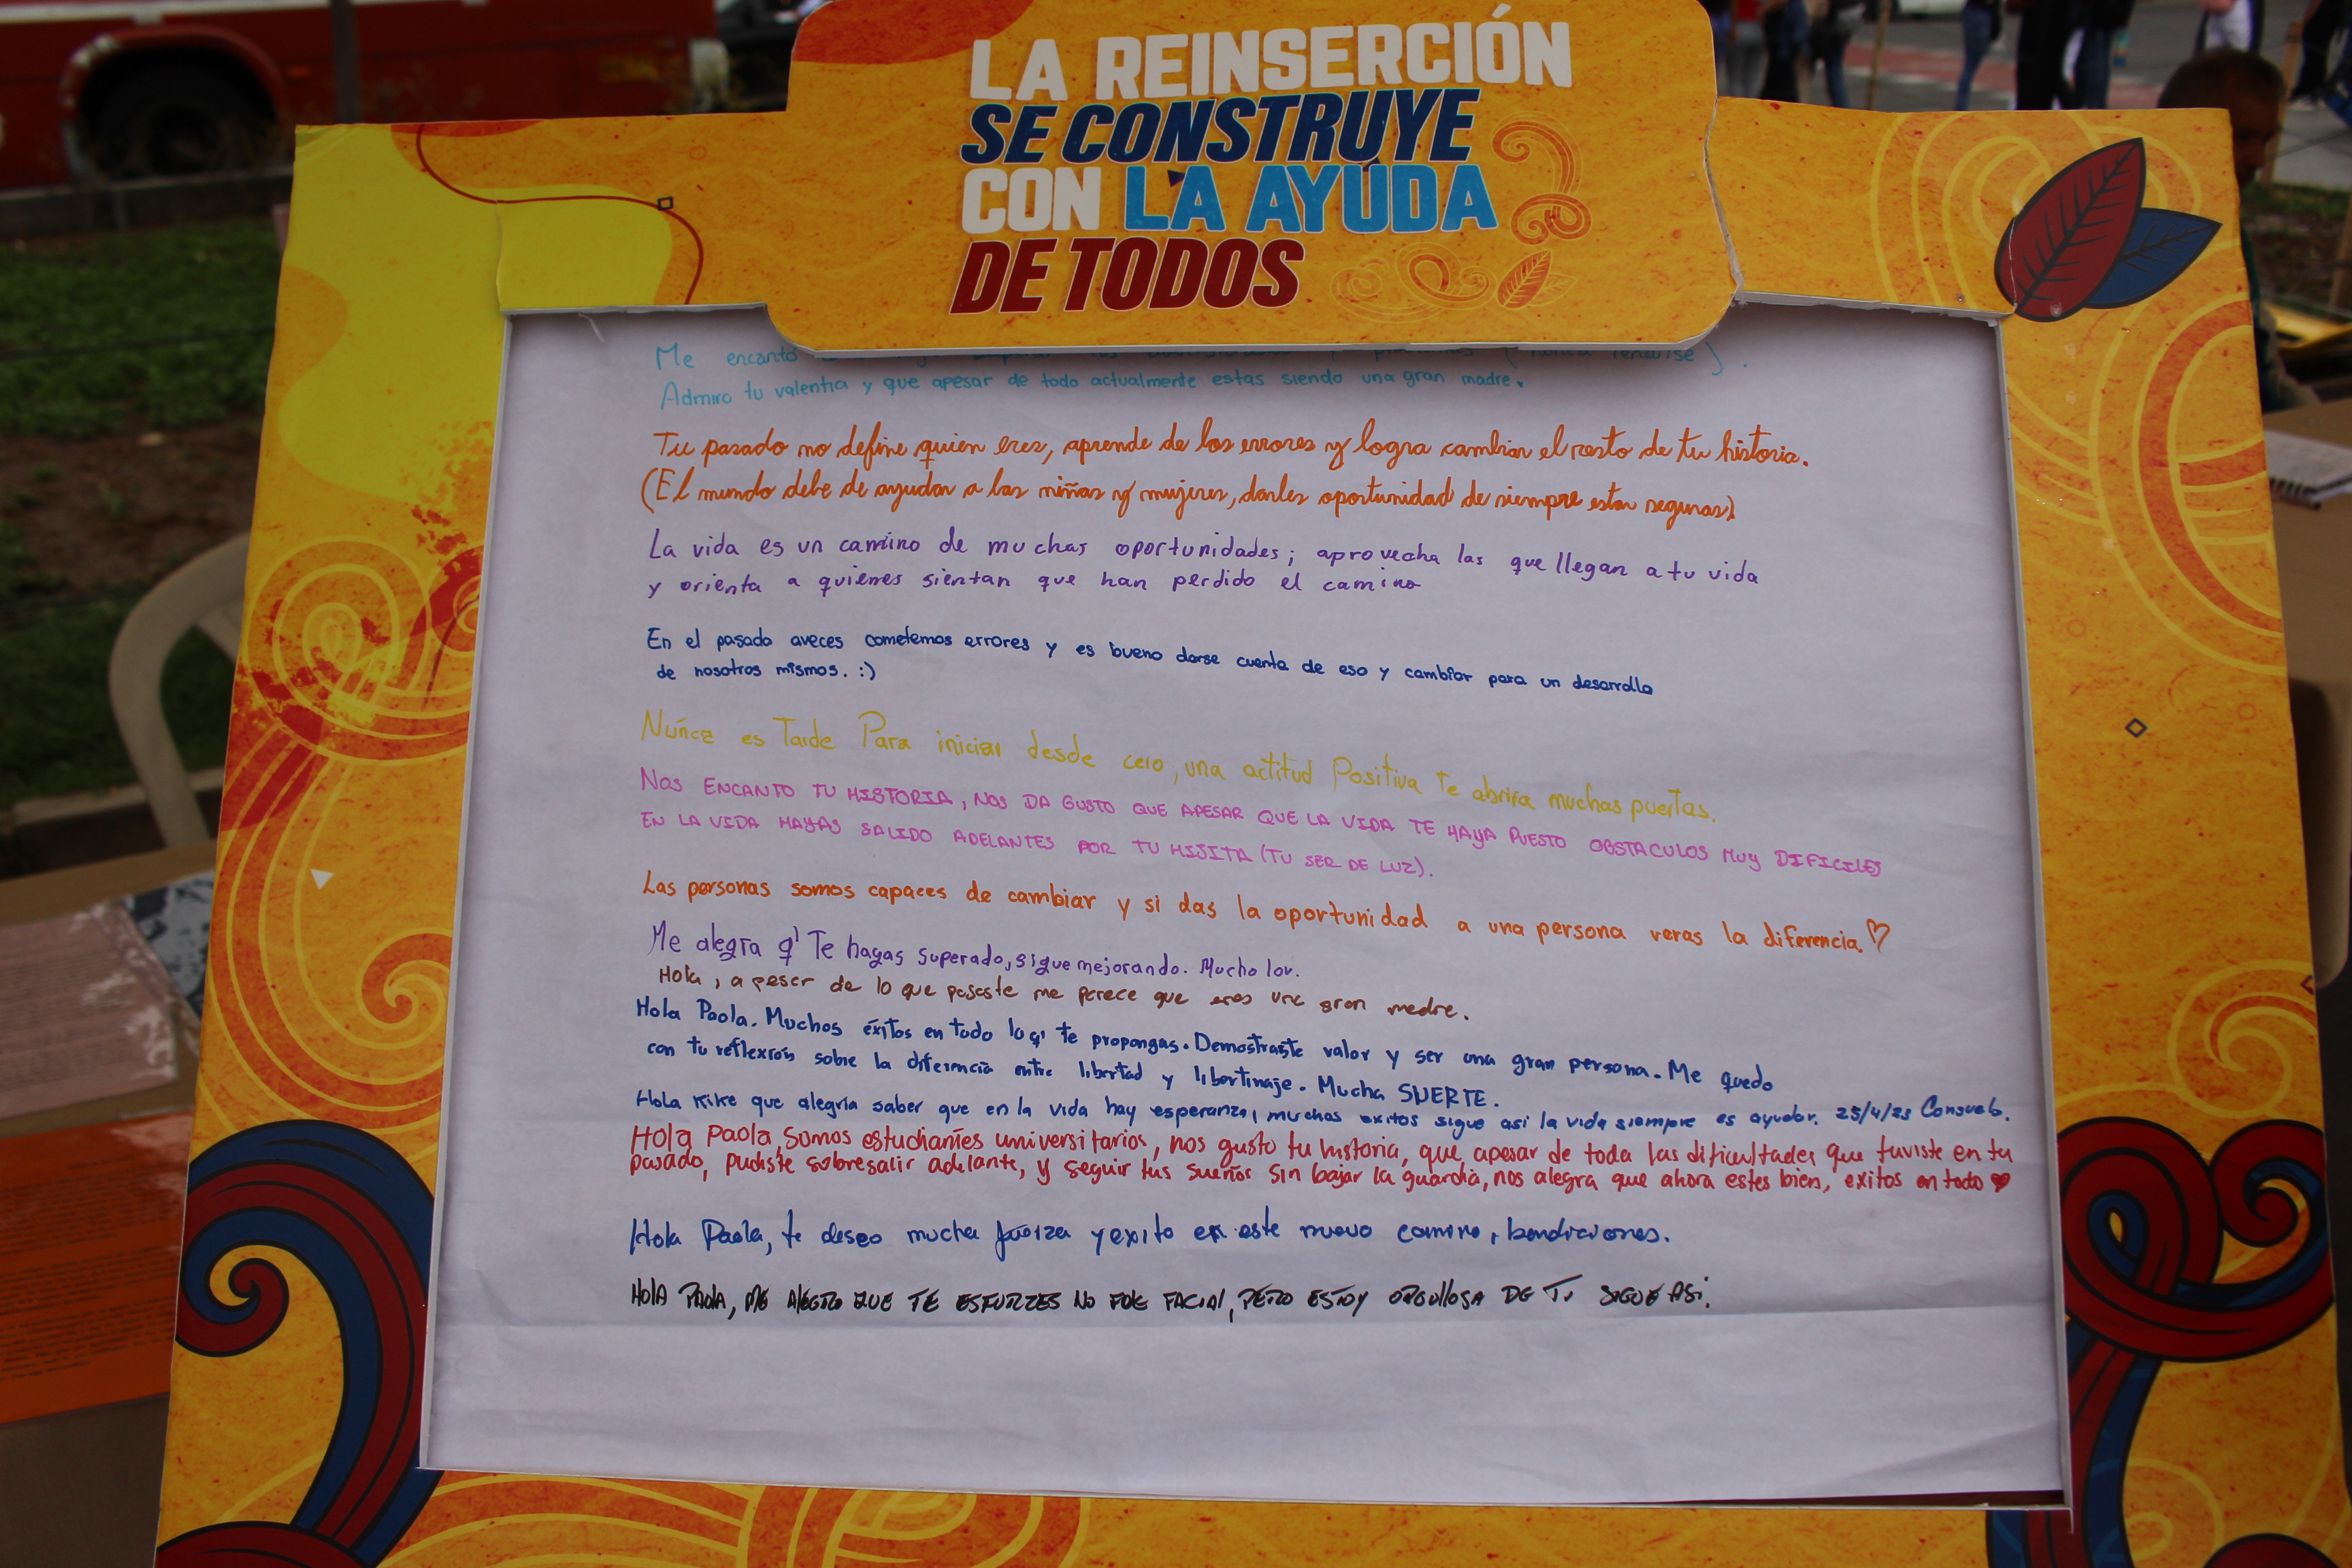 LA REINSERCIÓN
SE CONSTRUYE
CON LA AYUDA
DE TODOS
Me encantó
Admiro tu valentia y que apesar de todo actualmente estas siendo una gran madre.
Tu pasado no define quien eres, aprende de los errores y logra cambiar el resto de tu historia.
(El mundo debe de ayudar a las niñas y mujeres, darles oportunidad de siempre estar seguras)
La vida es un camino de muchas oportunidades; aprovecha las que llegan a tu vida
y orienta a quienes sientan que han perdido el camino
En el pasado aveces cometemos errores y es bueno darse cuenta de eso y cambiar para un desarrollo
de nosotros mismos. :)
Nunca es Tarde Para iniciar desde cero, una actitud Positiva te abrira muchas puertas.
NOS ENCANTO TU HISTORIA, NOS DA GUSTO QUE APESAR QUE LA VIDA TE HAYA PUESTO OBSTACULOS MUY DIFICILES
EN LA VIDA HAYAS SALIDO ADELANTES POR TU HIJITA (TU SER DE LUZ).
Las personas somos capaces de cambiar y si das la oportunidad a una persona veras la diferencia. ♡
Me alegra q' Te hayas superado, sigue mejorando. Mucho lov.
Hola, a pesar de lo que pasaste me parece que eres una gran madre.
Hola Paola. Muchos éxitos en todo lo q' te propongas. Demostraste valor y ser una gran persona. Me quedo
con tu reflexión sobre la diferencia entre libertad y libertinaje. Mucha SUERTE.
Hola Kike que alegria saber que en la vida hay esperanza, muchos exitos sigue asi la vida siempre es ayudar. 25/4/23 Consuelo.
Hola Paola, Somos estudiantes universitarios, nos gusto tu historia, que apesar de toda las dificultades que tuviste en tu
pasado, pudiste sobresalir adelante, y seguir tus sueños sin bajar la guardia, nos alegra que ahora estes bien, exitos en todo ♥
Hola Paola, te deseo mucha fuerza y exito en este nuevo camino, bendiciones.
HOLA PAOLA, ME ALEGRO QUE TE ESFURZES NO FUE FACIAL, PERO ESTOY ORGULLOSA DE TI SIGUE ASI.